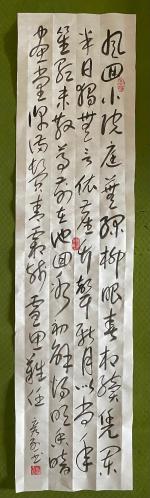 風回小院庭蕪綠柳眼春相續憑闌
半日獨無言依舊竹聲新月似當年
笙歌未散尊前在池面冰初解燭明香暗
畫堂深滿鬢青霜殘雪思難任